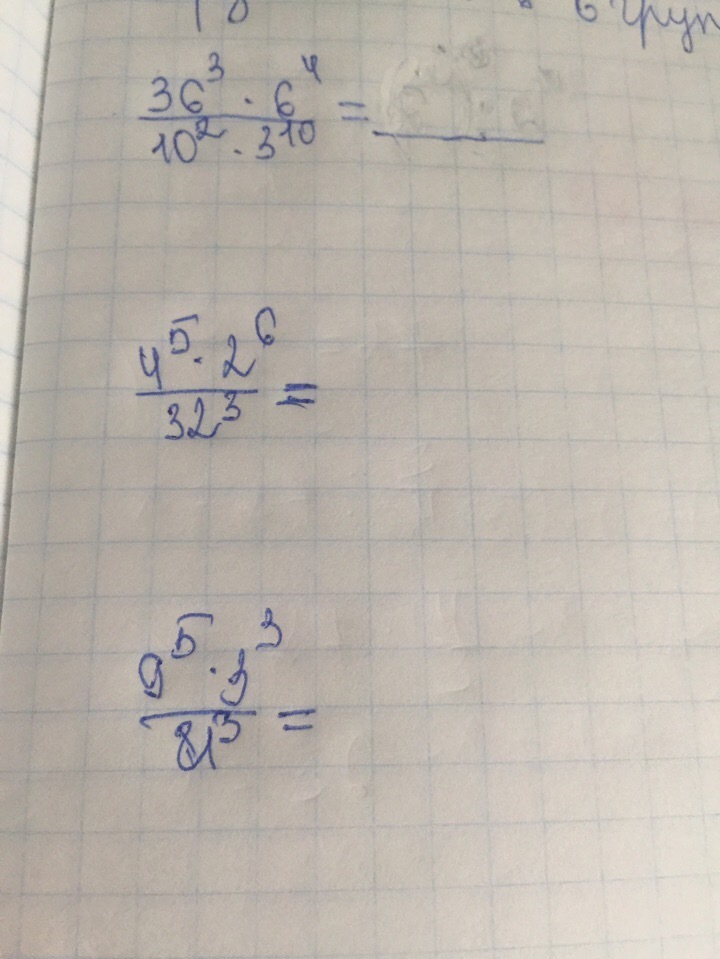 36³ · 6⁴ / 10² · 3¹⁰ =
4⁵ · 2⁶ / 32³ =
9⁵ · 3³ / 81³ =